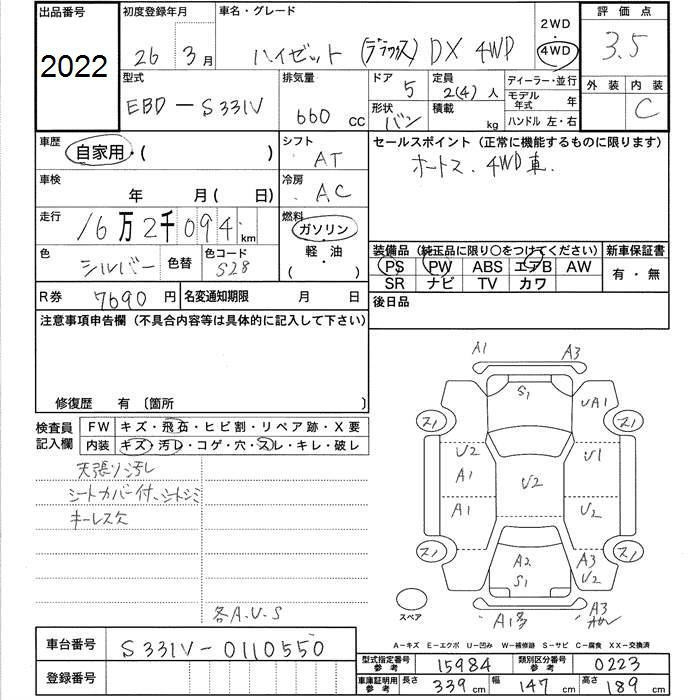 出品番号 初度登録年月 車名・グレード 2WD 評価点
2022 26年 3月 ハイゼット (デラックス) DX 4WD 4WD 3.5
型式 排気量 ドア 定員 ディーラー・並行 外装 内装
EBD-S331V 660 cc 5 2(4)人 モデル年式 年 C
形状 積載 ハンドル 左・右
バン kg
車歴 シフト セールスポイント (正常に機能するものに限ります)
自家用・( ) AT オートス、4WD車.
車検 冷房
年 月( 日) AC
走行 燃料
16万2千094km ガソリン
色 色替 色コード 軽・油 装備品 (純正品に限り○をつけてください) 新車保証書
シルバー S28 ( ・ ) PS PW ABS エアB AW 有・無
SR ナビ TV カワ
R券 7690円 名変通知期限 月 日 後日品
注意事項申告欄 (不具合内容等は具体的に記入して下さい)
修復歴 有 〔箇所 〕
検査員記入欄 FW キズ・飛石・ヒビ割・リペア跡・X要
内装 キズ・汚レ・コゲ・穴・スレ・キレ・破レ
天張り汚レ
シートカバー付、シートシミ
キーレス欠
各A.U.S
A1 A3
S1 UA1
ス1 ス1
U2 U1
A1 U2
A1 U2
ス1 ス1
A2 A3
S1 U2
スペア
A1多 A3
A-キズ E-エクボ U-凹み W-補修跡 S-サビ C-腐食 XX-交換済
車台番号 S331V-0110550
型式指定番号参考 15984 類別区分番号参考 0223
登録番号
車庫証明用参考 長さ 339cm 幅 147cm 高さ 189cm